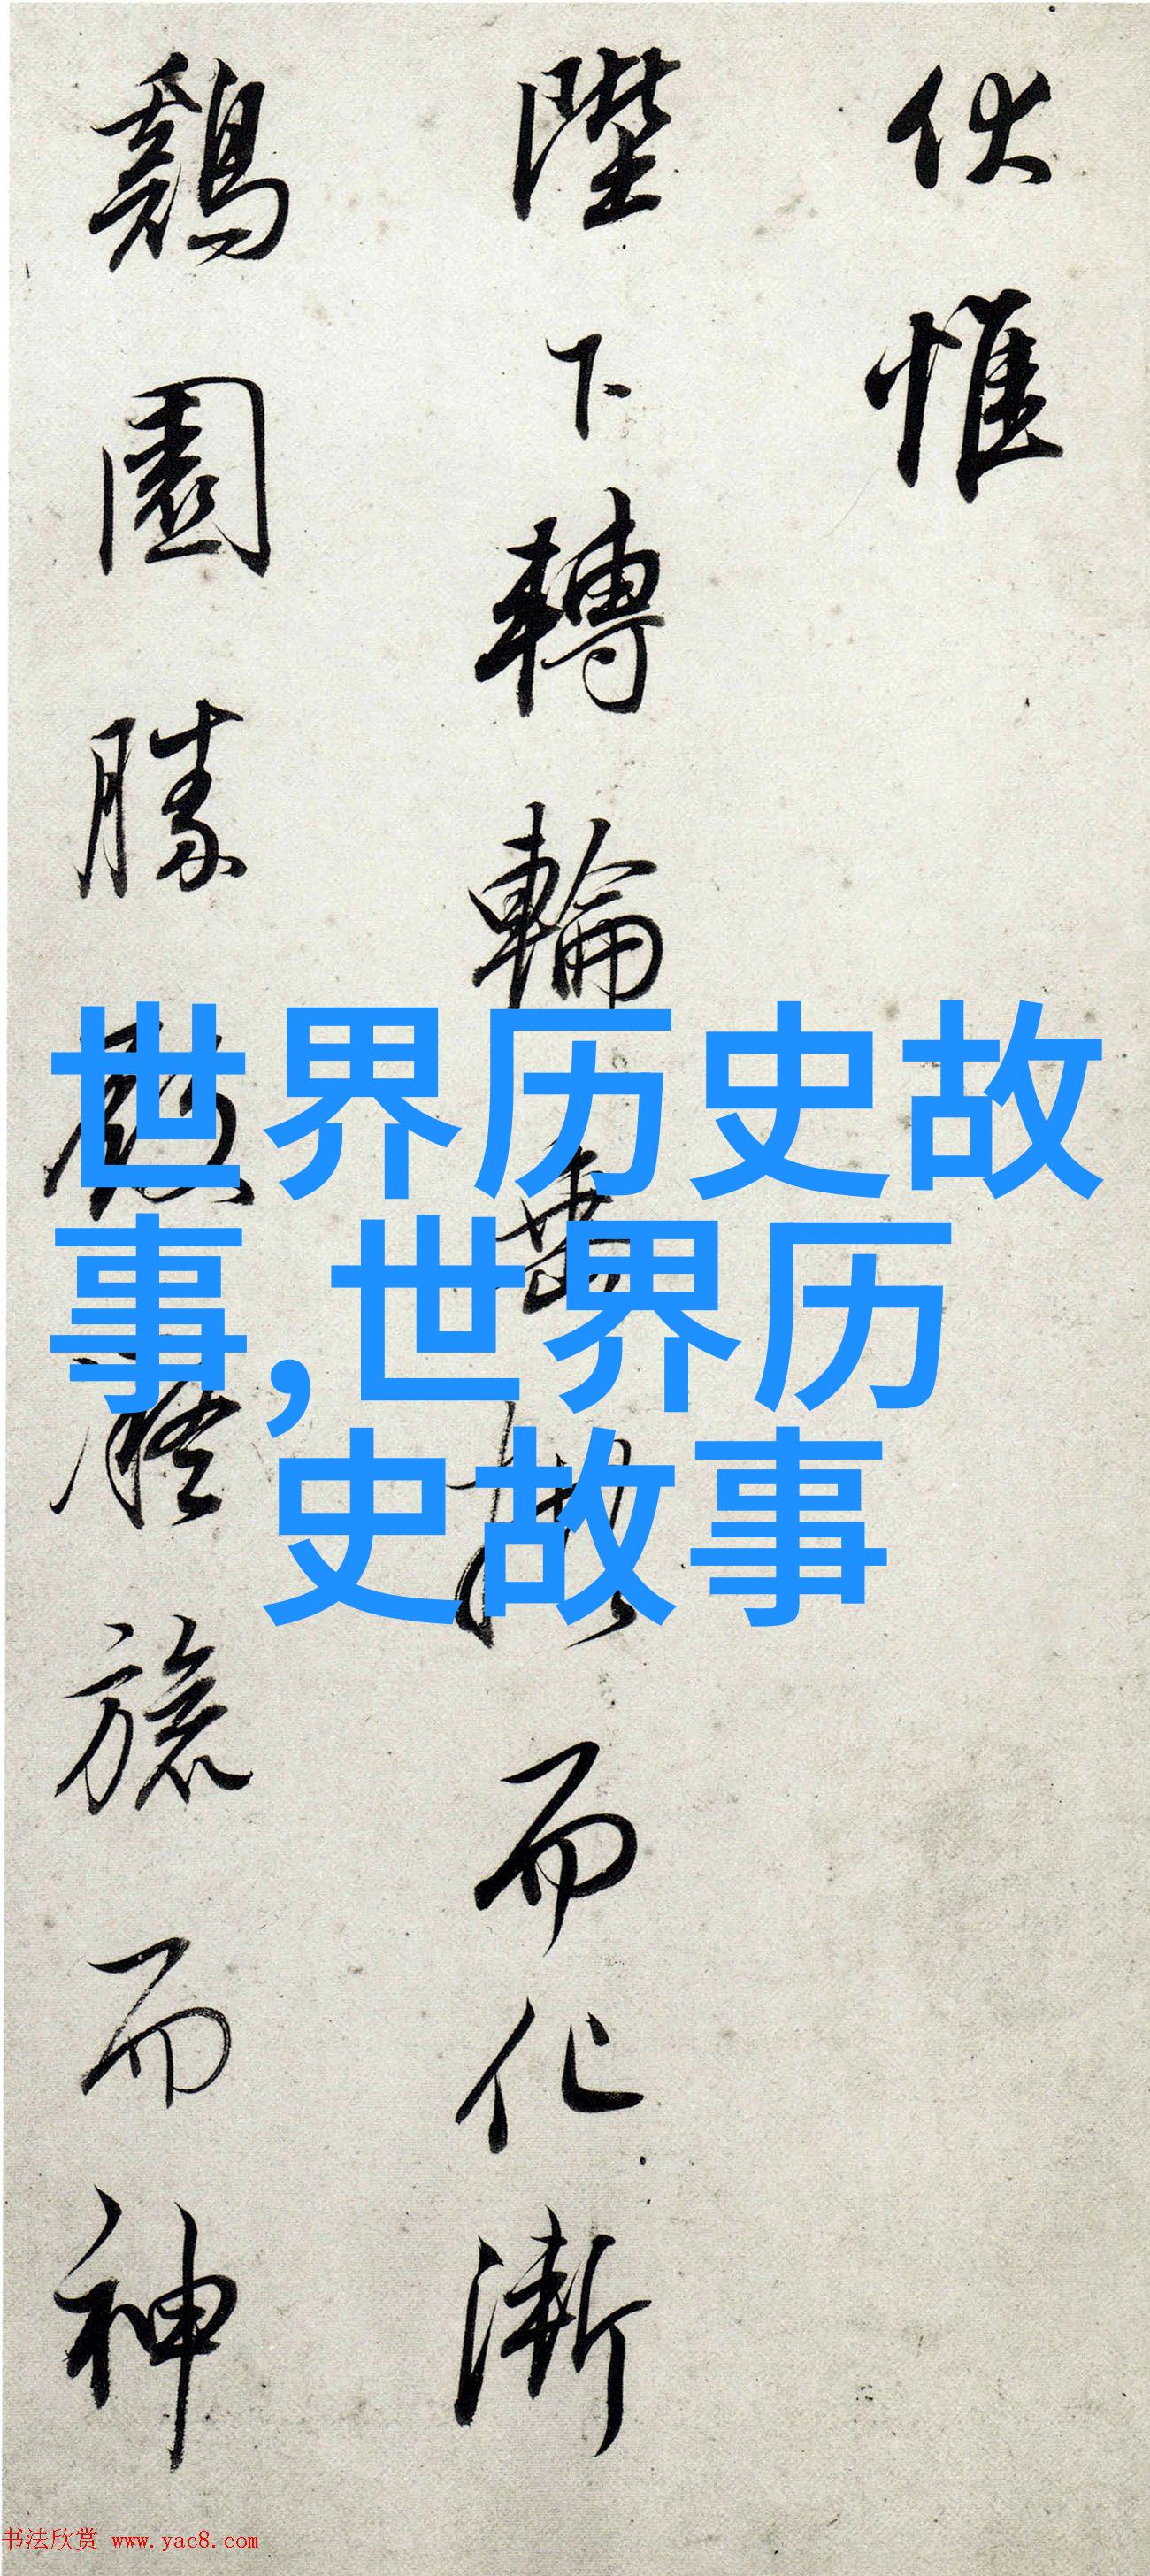 伏惟
陛下轉輪垂拱而化漸
鷄園勝旅而神
世界历史故
事,世界历
史故事
书法欣赏 www.yac8.com